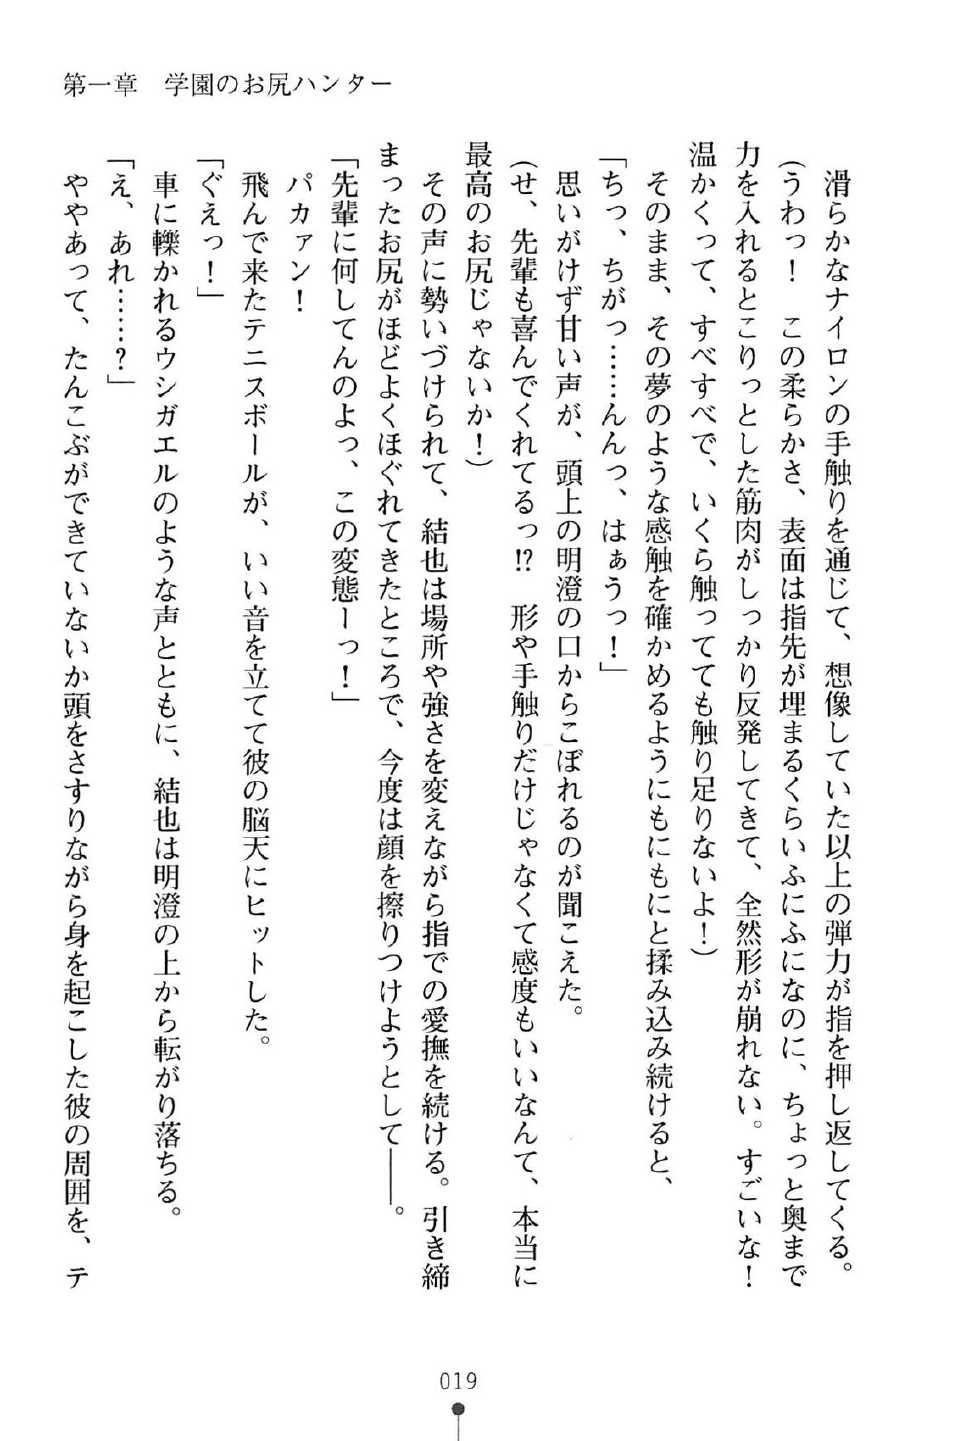 第一章　学園のお尻ハンター
　滑らかなナイロンの手触りを通じて、想像していた以上の弾力が指を押し返してくる。
（うわっ！　この柔らかさ、表面は指先が埋まるくらいふにふになのに、ちょっと奥まで
力を入れるとこりっとした筋肉がしっかり反発してきて、全然形が崩れない。すごいな！
温かくって、すべすべで、いくら触ってても触り足りないよ！）
　そのまま、その夢のような感触を確かめるようにもにもにと揉み込み続けると、
「ちっ、ちがっ……んんっ、はぁうっ！」
　思いがけず甘い声が、頭上の明澄の口からこぼれるのが聞こえた。
（せ、先輩も喜んでくれてるっ!?　形や手触りだけじゃなくて感度もいいなんて、本当に
最高のお尻じゃないか！）
　その声に勢いづけられて、結也は場所や強さを変えながら指での愛撫を続ける。引き締
まったお尻がほどよくほぐれてきたところで、今度は顔を擦りつけようとして――。
「先輩に何してんのよっ、この変態ーっ！」
　パカァン！
　飛んで来たテニスボールが、いい音を立てて彼の脳天にヒットした。
「ぐえっ！」
　車に轢かれるウシガエルのような声とともに、結也は明澄の上から転がり落ちる。
「え、あれ……？」
　ややあって、たんこぶができていないか頭をさすりながら身を起こした彼の周囲を、テ
019